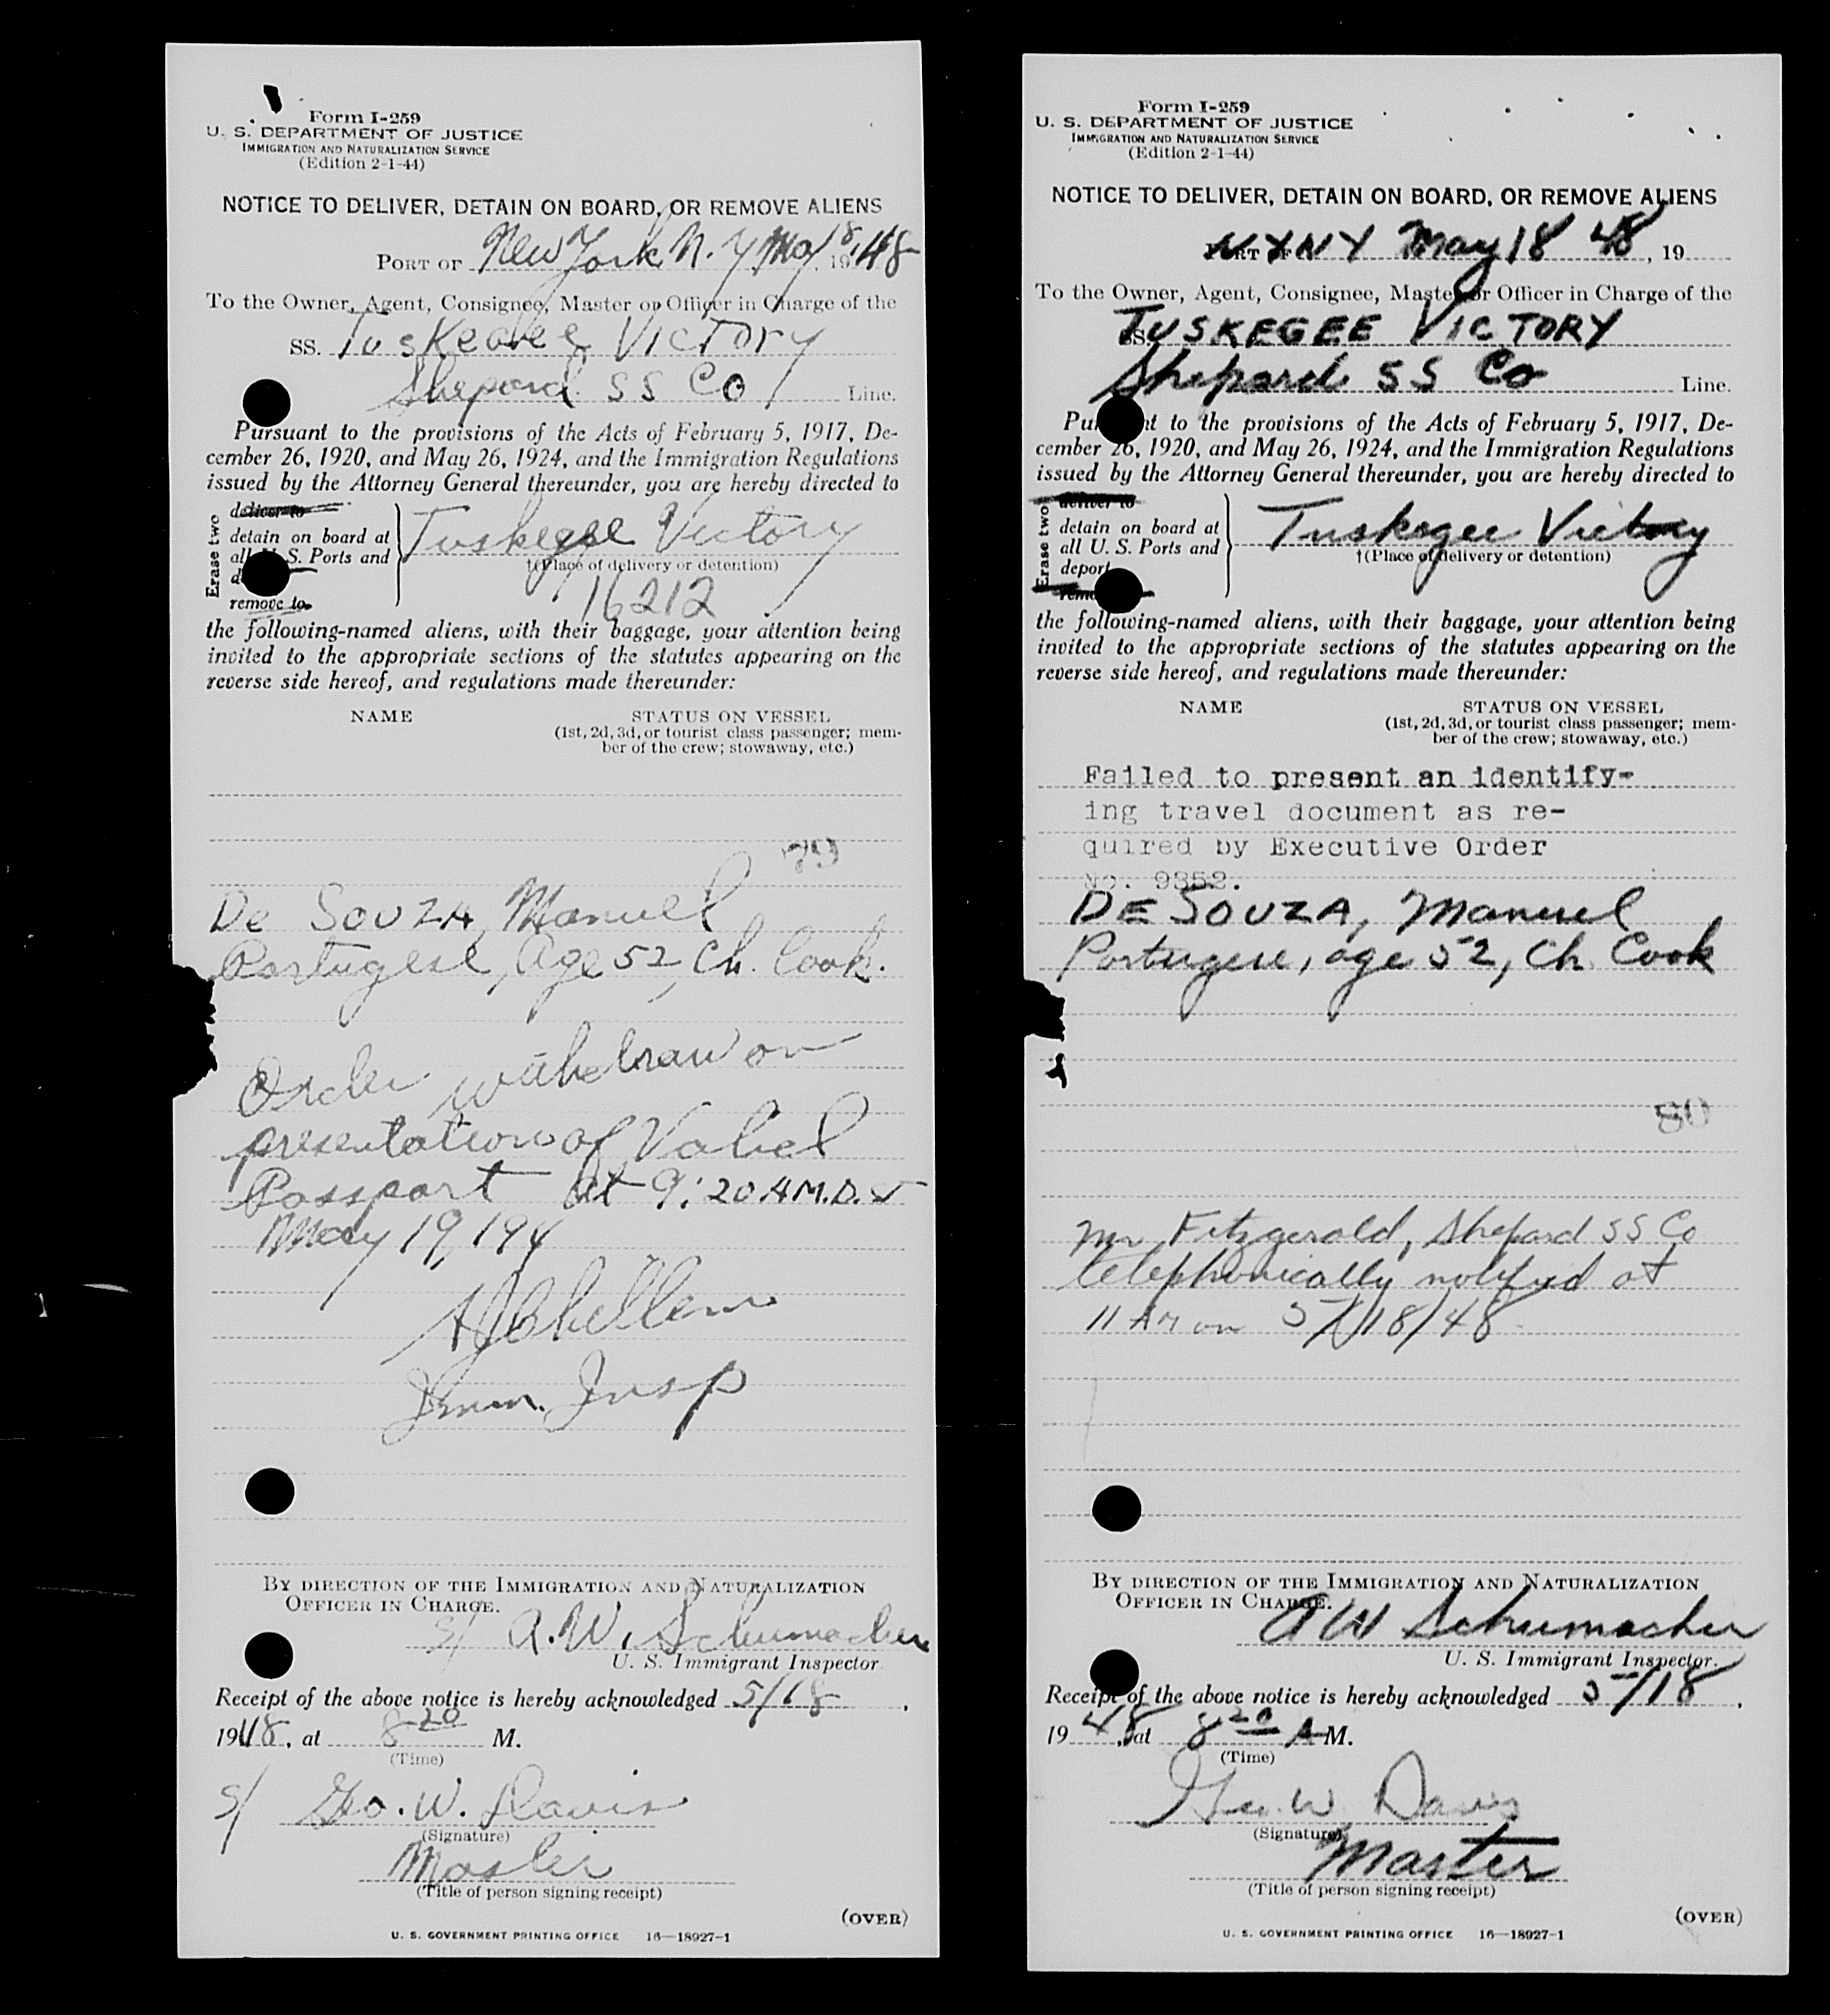 Form I-259
U. S. DEPARTMENT OF JUSTICE
IMMIGRATION AND NATURALIZATION SERVICE
(Edition 2-1-44)
NOTICE TO DELIVER, DETAIN ON BOARD, OR REMOVE ALIENS
PORT OF New York, N. Y. May 18, 1948
To the Owner, Agent, Consignee, Master or Officer in Charge of the
SS. Tuskegee Victory
Shepard SS Co Line.
Pursuant to the provisions of the Acts of February 5, 1917, De-
cember 26, 1920, and May 26, 1924, and the Immigration Regulations
issued by the Attorney General thereunder, you are hereby directed to
Erase two
deliver to
detain on board at
all U. S. Ports and
remove to
Tuskegee Victory
†(Place of delivery or detention)
16212
the following-named aliens, with their baggage, your attention being
invited to the appropriate sections of the statutes appearing on the
reverse side hereof, and regulations made thereunder:
NAME STATUS ON VESSEL
(1st, 2d, 3d, or tourist class passenger; mem-
ber of the crew; stowaway, etc.)
79
De SOUZA, Manuel
Portugese, Age 52, Ch. Cook.
Order withdrawn on
presentation of Valid
Passport at 9:20 A.M. D.S.T
May 19, 194
Imm. Insp
BY DIRECTION OF THE IMMIGRATION AND NATURALIZATION
OFFICER IN CHARGE.
s/ A.W. Schumacher
U. S. Immigrant Inspector.
Receipt of the above notice is hereby acknowledged 5/18,
1948, at 8 20 M.
(Time)
s/ Geo. W. Davis
(Signature)
Master
(Title of person signing receipt)
(OVER)
U. S. GOVERNMENT PRINTING OFFICE 16—18927-1
Form I-259
U. S. DEPARTMENT OF JUSTICE
IMMIGRATION AND NATURALIZATION SERVICE
(Edition 2-1-44)
NOTICE TO DELIVER, DETAIN ON BOARD, OR REMOVE ALIENS
PORT OF NYNY May 18 48, 19
To the Owner, Agent, Consignee, Master or Officer in Charge of the
SS. TUSKEGEE VICTORY
Shepard SS Co Line.
Pursuant to the provisions of the Acts of February 5, 1917, De-
cember 26, 1920, and May 26, 1924, and the Immigration Regulations
issued by the Attorney General thereunder, you are hereby directed to
Erase two
deliver to
detain on board at
all U. S. Ports and
deport
remove to
Tuskegee Victory
†(Place of delivery or detention)
the following-named aliens, with their baggage, your attention being
invited to the appropriate sections of the statutes appearing on the
reverse side hereof, and regulations made thereunder:
NAME STATUS ON VESSEL
(1st, 2d, 3d, or tourist class passenger; mem-
ber of the crew; stowaway, etc.)
Failed to present an identify-
ing travel document as re-
quired by Executive Order
No. 9352.
DE SOUZA, Manuel
Portugese, age 52, Ch Cook
80
Mr Fitzgerald, Shepard SS Co
telephonically notified at
11 AM on 5/18/48
BY DIRECTION OF THE IMMIGRATION AND NATURALIZATION
OFFICER IN CHARGE.
A W Schumacher
U. S. Immigrant Inspector.
Receipt of the above notice is hereby acknowledged 5/18,
1948, at 8 20 A M.
(Time)
Geo. W Davis
(Signature)
Master
(Title of person signing receipt)
(OVER)
U. S. GOVERNMENT PRINTING OFFICE 16—18927-1